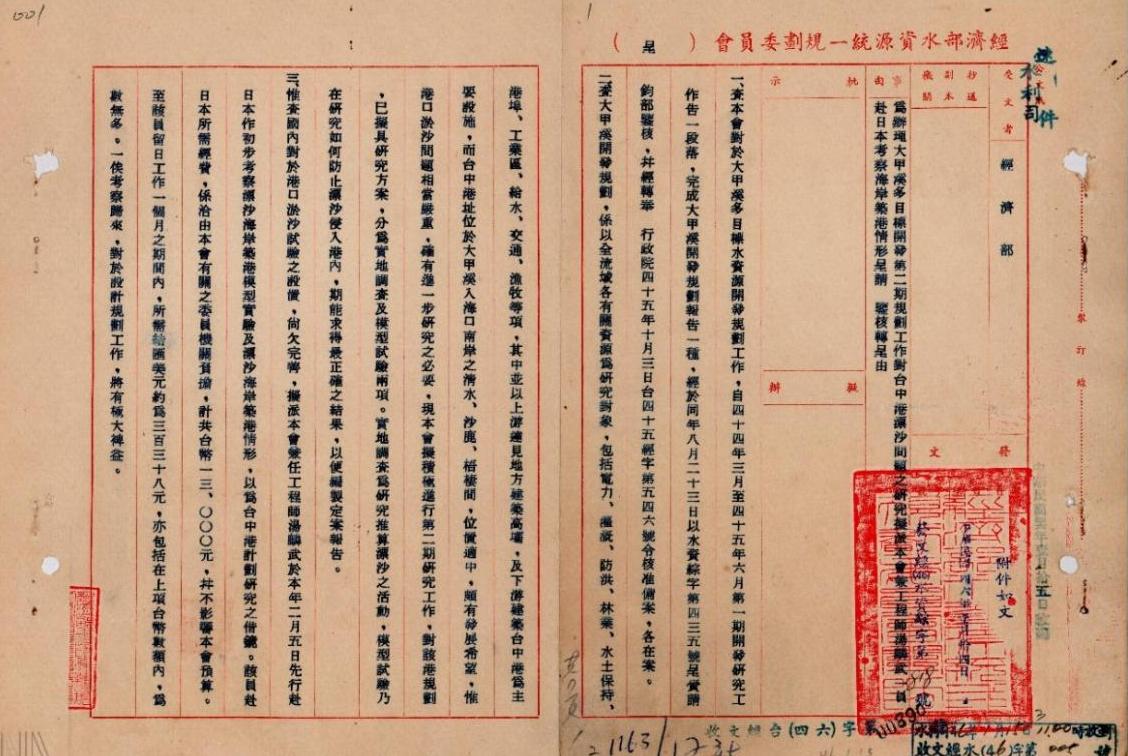 經濟部水資源統一規劃委員會（呈）
速件
水利司
受文者
經濟部
抄送
副本
機關
事由
為辦理大甲溪多目標開發第二期規劃工作對台中港漂沙問題之研究擬派本會兼工程師湯麟武一員
赴日本考察海岸築港情形呈請　鑒核轉呈由
批示
擬辦
發文
附件如文
一、查本會對於大甲溪多目標水資源開發規劃工作，自四十四年三月至四十五年六月第一期開發研究工
作告一段落，完成大甲溪開發規劃報告一種，經於同年八月二十三日以水資綜字第四三五號呈賫請
鈞部鑒核，并經轉奉　行政院四十五年十月三日台四十五經字第五五四六號令核准備案，各在案。
二、查大甲溪開發規劃，係以全流域各有關資源為研究對象，包括電力、灌溉、防洪、林業、水土保持、
港埠、工業區、給水、交通、漁牧等項，其中並以上游達見地方建築高壩，及下游建築台中港為主
要設施，而台中港址位於大甲溪入海口南岸之清水、沙鹿、梧棲間，位置適中，頗有發展希望，惟
港口淤沙問題相當嚴重，確有進一步研究之必要，現本會擬積極進行第二期研究工作，對該港規劃
，已擬具研究方案，分為實地調查及模型試驗兩項。實地調查為研究推算漂沙之活動，模型試驗乃
在研究如何防止漂沙侵入港內，期能求得最正確之結果，以便編製定案報告。
三、惟查國內對於港口淤沙試驗之設備，尚欠完善，擬派本會兼任工程師湯麟武於本年二月五日先行赴
日本作初步考察漂沙海岸築港模型實驗及漂沙海岸築港情形，以為台中港計劃研究之借鏡。該員赴
日本所需經費，係洽由本會有關之委員機關負擔，計共台幣一三、〇〇〇元，并不影響本會預算。
至該員留日工作一個月之期間內，所需結匯美元約為三百三十八元，亦包括在上項台幣數額內，為
數無多。一俟考察歸來，對於設計規劃工作，將有極大裨益。